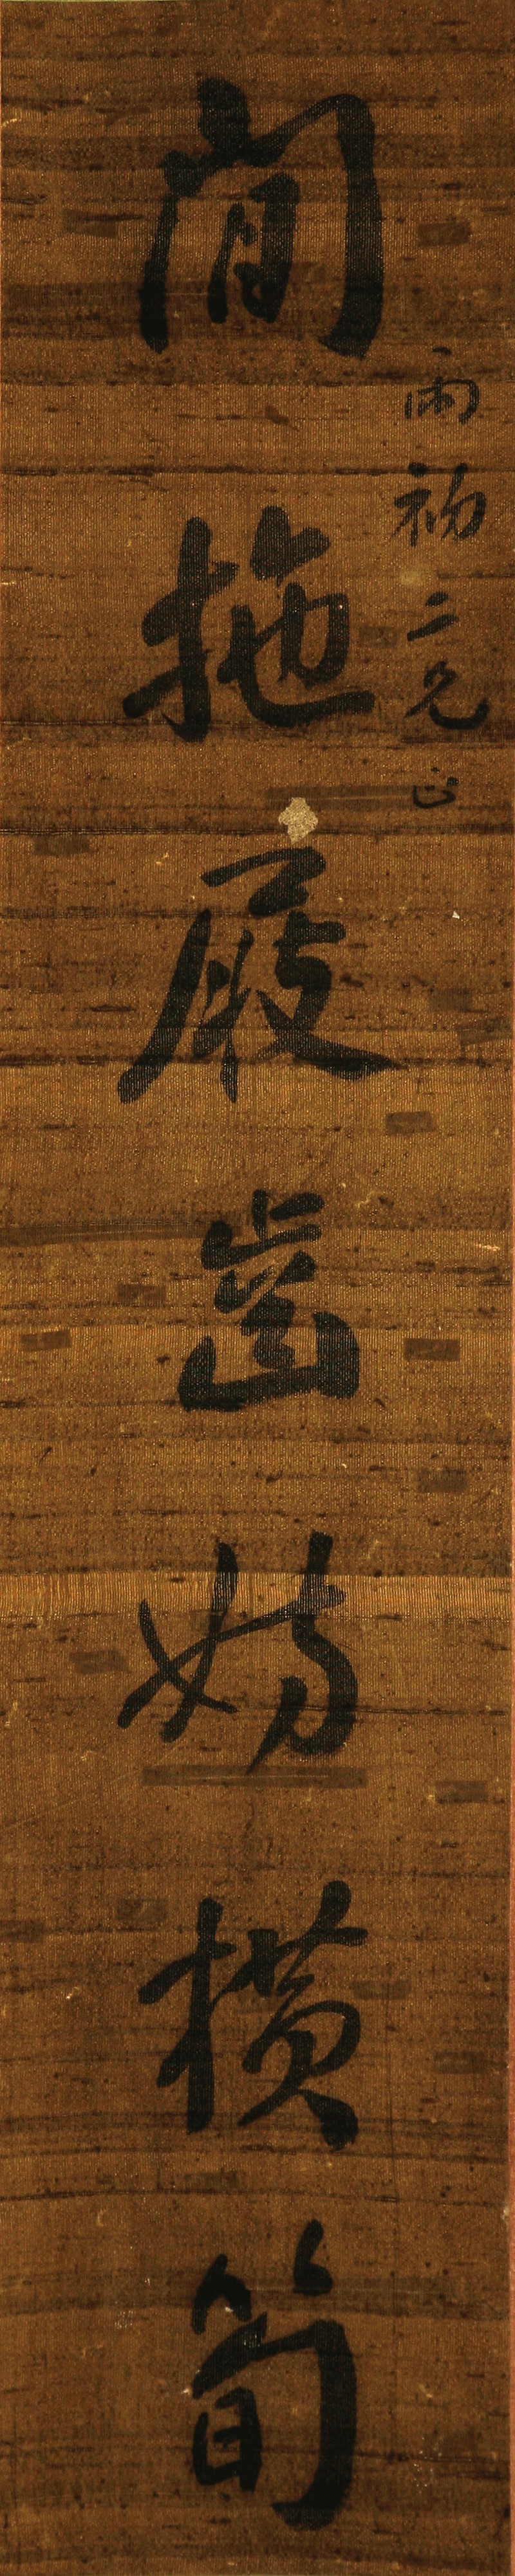 雨初二兄正
閒拖屐齒妨橫筍